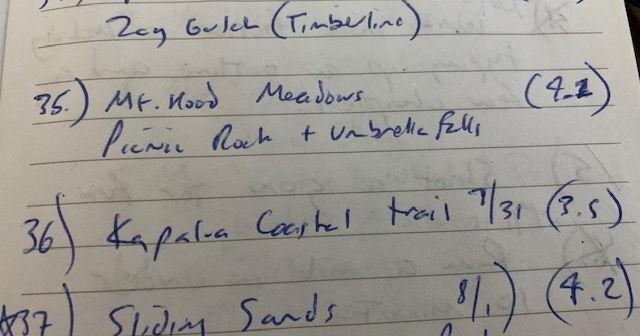 Zag Gulch (Timberline)
35.) Mt. Hood Meadows (4.2)
Picnic Rock + Umbrella Falls
36) Kapalua Coastal trail 7/31 (3.5)
37) Sliding Sands 8/1) (4.2)